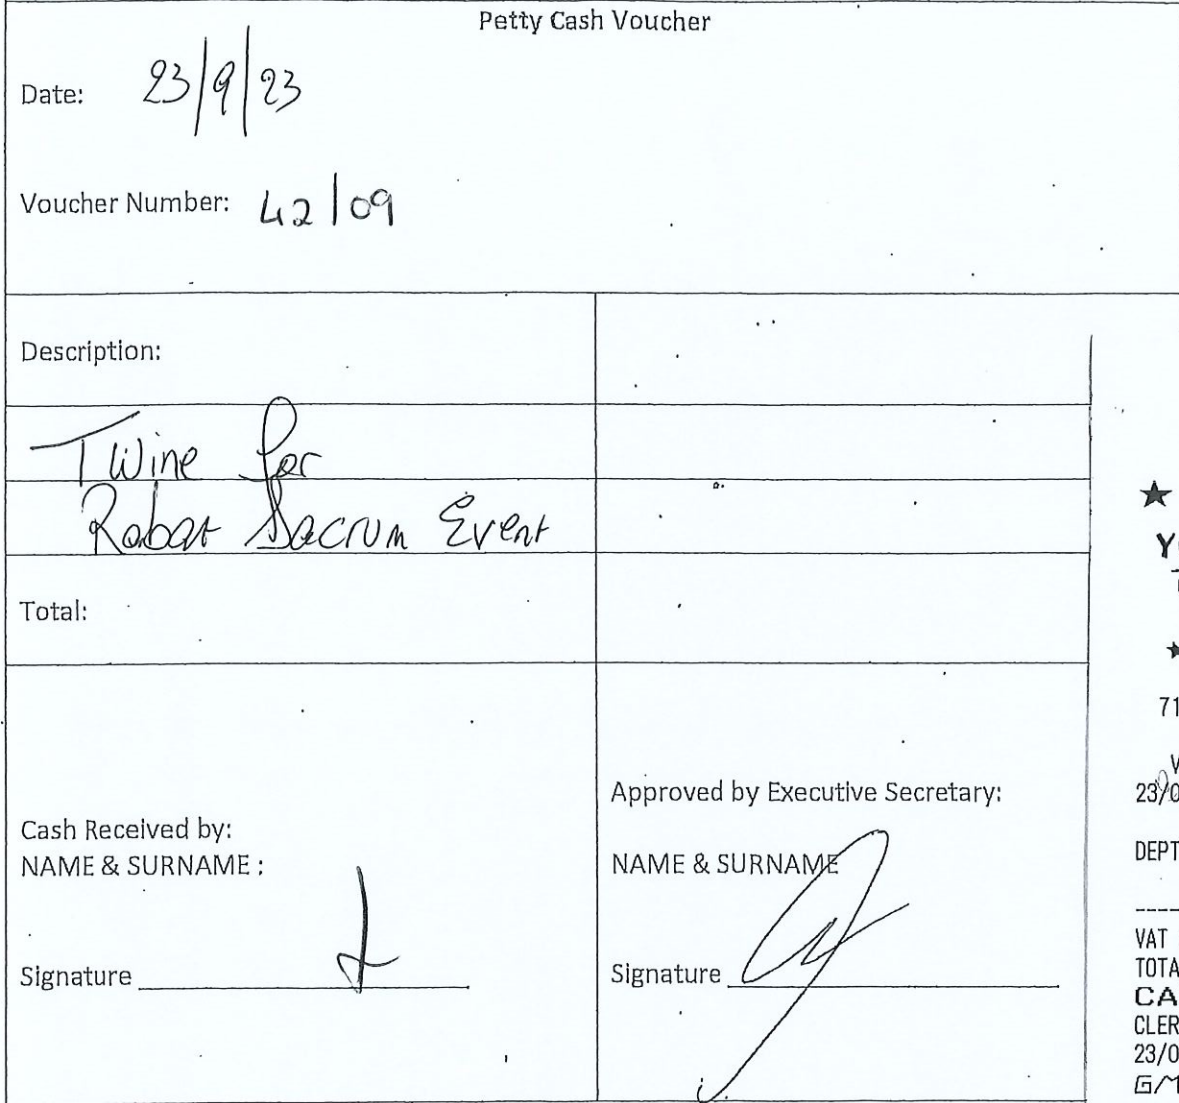 Petty Cash Voucher
Date: 23/9/23
Voucher Number: 42/09
Description:
Twine for
Rabat Sacrum Event
Total:
Cash Received by:
NAME & SURNAME :
Signature
Approved by Executive Secretary:
NAME & SURNAME
Signature
71
23/0
DEPT
VAT
TOTA
CA
CLER
23/0
G/M